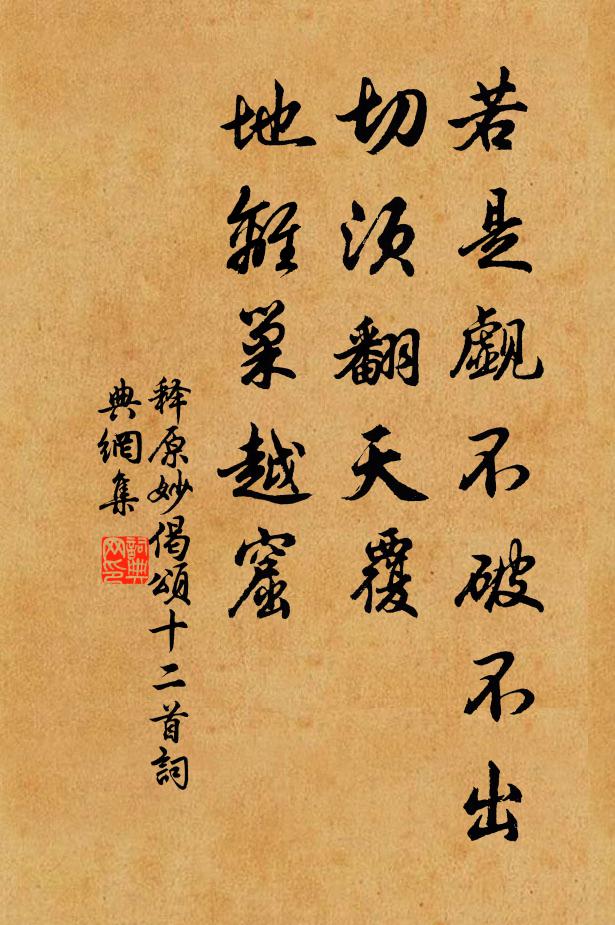 若是覷不破不出
切須翻天覆
地離巢越窟
释原妙偈頌十二首詞
典網集
詞典網印